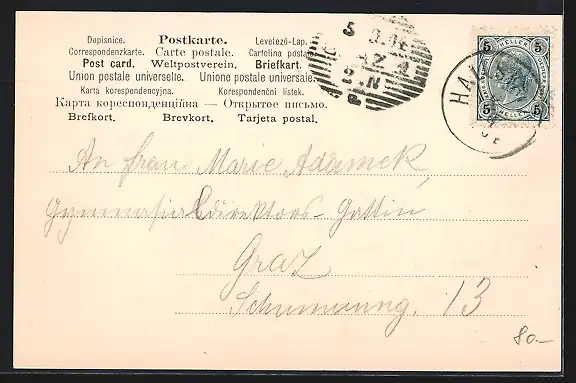 Dopisnice. Postkarte. Levelező-Lap.
Correspondenzkarte. Carte postale. Cartolina postale.
Post card. Weltpostverein. Briefkart.
Union postale universelle. Unione postale universale.
Karta korespondencyjna. Korespondenční lístek.
Карта кореспонденційна — Открытое письмо.
Brefkort. Brevkort. Tarjeta postal.
5
5 HELLER 5
5 5
HELLER
An Frau Marie Adamek,
Gymnasialdirektors-Gattin
Graz
13
80.-